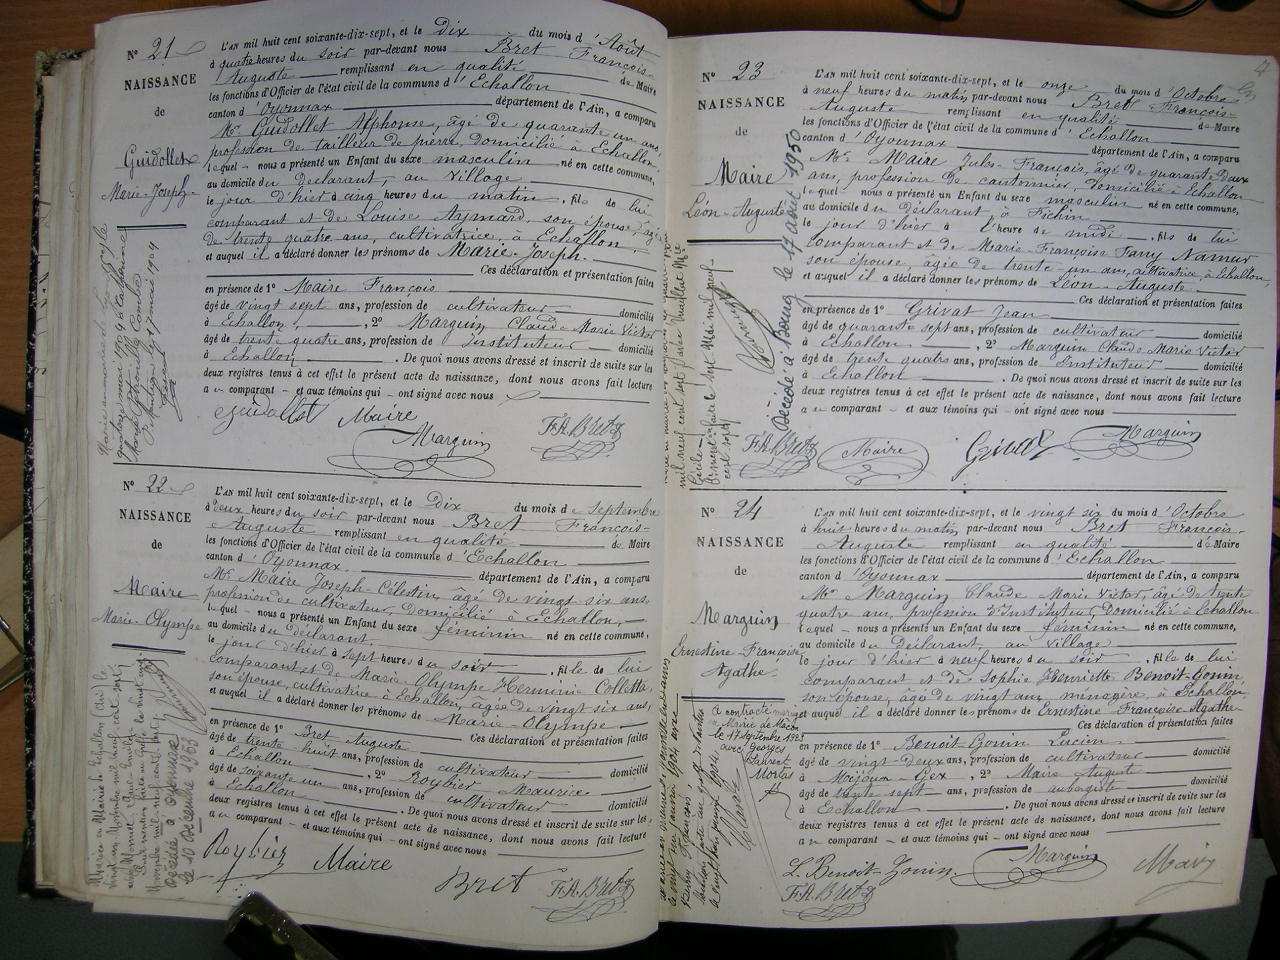 N° 21
NAISSANCE
de
Guidollet
Marie-Joseph
L'AN mil huit cent soixante-dix-sept, et le dix du mois d'Août
à quatre heures du soir par-devant nous Bret François-
Auguste remplissant en qualité de Maire
les fonctions d'Officier de l'état civil de la commune d'Echallon
canton d'Oyonnax département de l'Ain, a comparu
Mr Guidollet Alphonse, âgé de quarante un ans,
profession de tailleur de pierre, Domicilié à Echallon
lequel nous a présenté un Enfant du sexe masculin né en cette commune,
au domicile du déclarant, au village
le jour d'hier à cinq heures du matin, fils de lui
comparant et de Louise Aymard, son épouse, âgée
de trente quatre ans, cultivatrice, à Echallon,
et auquel il a déclaré donner les prénoms de Marie-Joseph.
Ces déclaration et présentation faites
en présence de 1° Maire François
âgé de vingt sept ans, profession de cultivateur domicilié
à Echallon, 2° Marquin Claude Marie Victor
âgé de trente quatre ans, profession de Instituteur domicilié
à Echallon. De quoi nous avons dressé et inscrit de suite sur les
deux registres tenus à cet effet le présent acte de naissance, dont nous avons fait lecture
au comparant et aux témoins qui ont signé avec nous
Guidollet Maire
Marquin F.A. Bret
N° 22
NAISSANCE
de
Maire
Marie Olympe
L'AN mil huit cent soixante-dix-sept, et le Dix du mois de Septembre
à deux heures du soir par-devant nous Bret François-
Auguste remplissant en qualité de Maire
les fonctions d'Officier de l'état civil de la commune d'Echallon
canton d'Oyonnax département de l'Ain, a comparu
Mr Maire Joseph-Célestin âgé de vingt six ans
profession de cultivateur, Domicilié à Echallon,
lequel nous a présenté un Enfant du sexe féminin né en cette commune,
au domicile du déclarant
le jour d'hier à sept heures du soir, fille de lui
comparant et de Marie Olympe Herminie Colletta,
son épouse, cultivatrice à Echallon, âgée de vingt six ans,
et auquel il a déclaré donner les prénoms de Marie Olympe
Ces déclaration et présentation faites
en présence de 1° Bret Auguste
âgé de trente huit ans, profession de cultivateur domicilié
à Echallon, 2° Roybier Maurice
âgé de soixante un ans, profession de cultivateur domicilié
à Echallon. De quoi nous avons dressé et inscrit de suite sur les
deux registres tenus à cet effet le présent acte de naissance, dont nous avons fait lecture
au comparant et aux témoins qui ont signé avec nous
Décédée à Oyonnax
le 10 décembre 1963
Roybier Maire
Bret F.A. Bret
N° 23
NAISSANCE
de
Maire
Léon-Auguste
L'AN mil huit cent soixante-dix-sept, et le onze du mois d'Octobre
à neuf heures du matin, par-devant nous Bret François-
Auguste remplissant en qualité de Maire
les fonctions d'Officier de l'état civil de la commune d'Echallon
canton d'Oyonnax département de l'Ain, a comparu
Mr Maire Jules-François, âgé de quarante Deux
ans, profession de cantonnier, domicilié à Echallon
lequel nous a présenté un Enfant du sexe masculin né en cette commune,
au domicile du déclarant, à
le jour d'hier à l'heure de midi, fils de lui
comparant et de Marie-Françoise Fany Namur
son épouse, âgée de trente-un ans, cultivatrice à Echallon,
et auquel il a déclaré donner les prénoms de Léon-Auguste.
Ces déclaration et présentation faites
en présence de 1° Grivat Jean
âgé de quarante sept ans, profession de cultivateur domicilié
à Echallon, 2° Marquin Claude Marie Victor
âgé de trente quatre ans, profession de Instituteur domicilié
à Echallon. De quoi nous avons dressé et inscrit de suite sur les
deux registres tenus à cet effet le présent acte de naissance, dont nous avons fait lecture
au comparant et aux témoins qui ont signé avec nous
Décédé à Bourg le 17 août 1950
F.A. Bret Maire Grivat Marquin
N° 24
NAISSANCE
de
Marquin
Ernestine-Françoise
Agathe
L'AN mil huit cent soixante-dix-sept, et le vingt six du mois d'Octobre
à huit heures du matin, par-devant nous Bret François-
Auguste remplissant en qualité de Maire
les fonctions d'Officier de l'état civil de la commune d'Echallon
canton d'Oyonnax département de l'Ain, a comparu
Mr Marquin Claude Marie Victor, âgé de trente
quatre ans, profession d'Instituteur, Domicilié à Echallon
lequel nous a présenté un Enfant du sexe féminin né en cette commune,
au domicile du déclarant, au village
le jour d'hier à neuf heures du soir, fille de lui
comparant et de Sophie Henriette Benoit-Gonin,
son épouse, âgée de vingt ans, ménagère, à Echallon,
et auquel il a déclaré donner les prénoms de Ernestine Françoise Agathe
Ces déclaration et présentation faites
en présence de 1° Benoit-Gonin Lucien
âgé de vingt-Deux ans, profession de cultivateur domicilié
à Mijoux-Gex, 2° Maire Auguste
âgé de trente sept ans, profession de aubergiste domicilié
à Echallon. De quoi nous avons dressé et inscrit de suite sur les
deux registres tenus à cet effet le présent acte de naissance, dont nous avons fait lecture
au comparant et aux témoins qui ont signé avec nous
A contracté mariage
à Mairie de Mâcon
le 17 septembre 1923
avec Georges
Laurent
L. Benoit-Gonin Marquin Maire
F.A. Bret